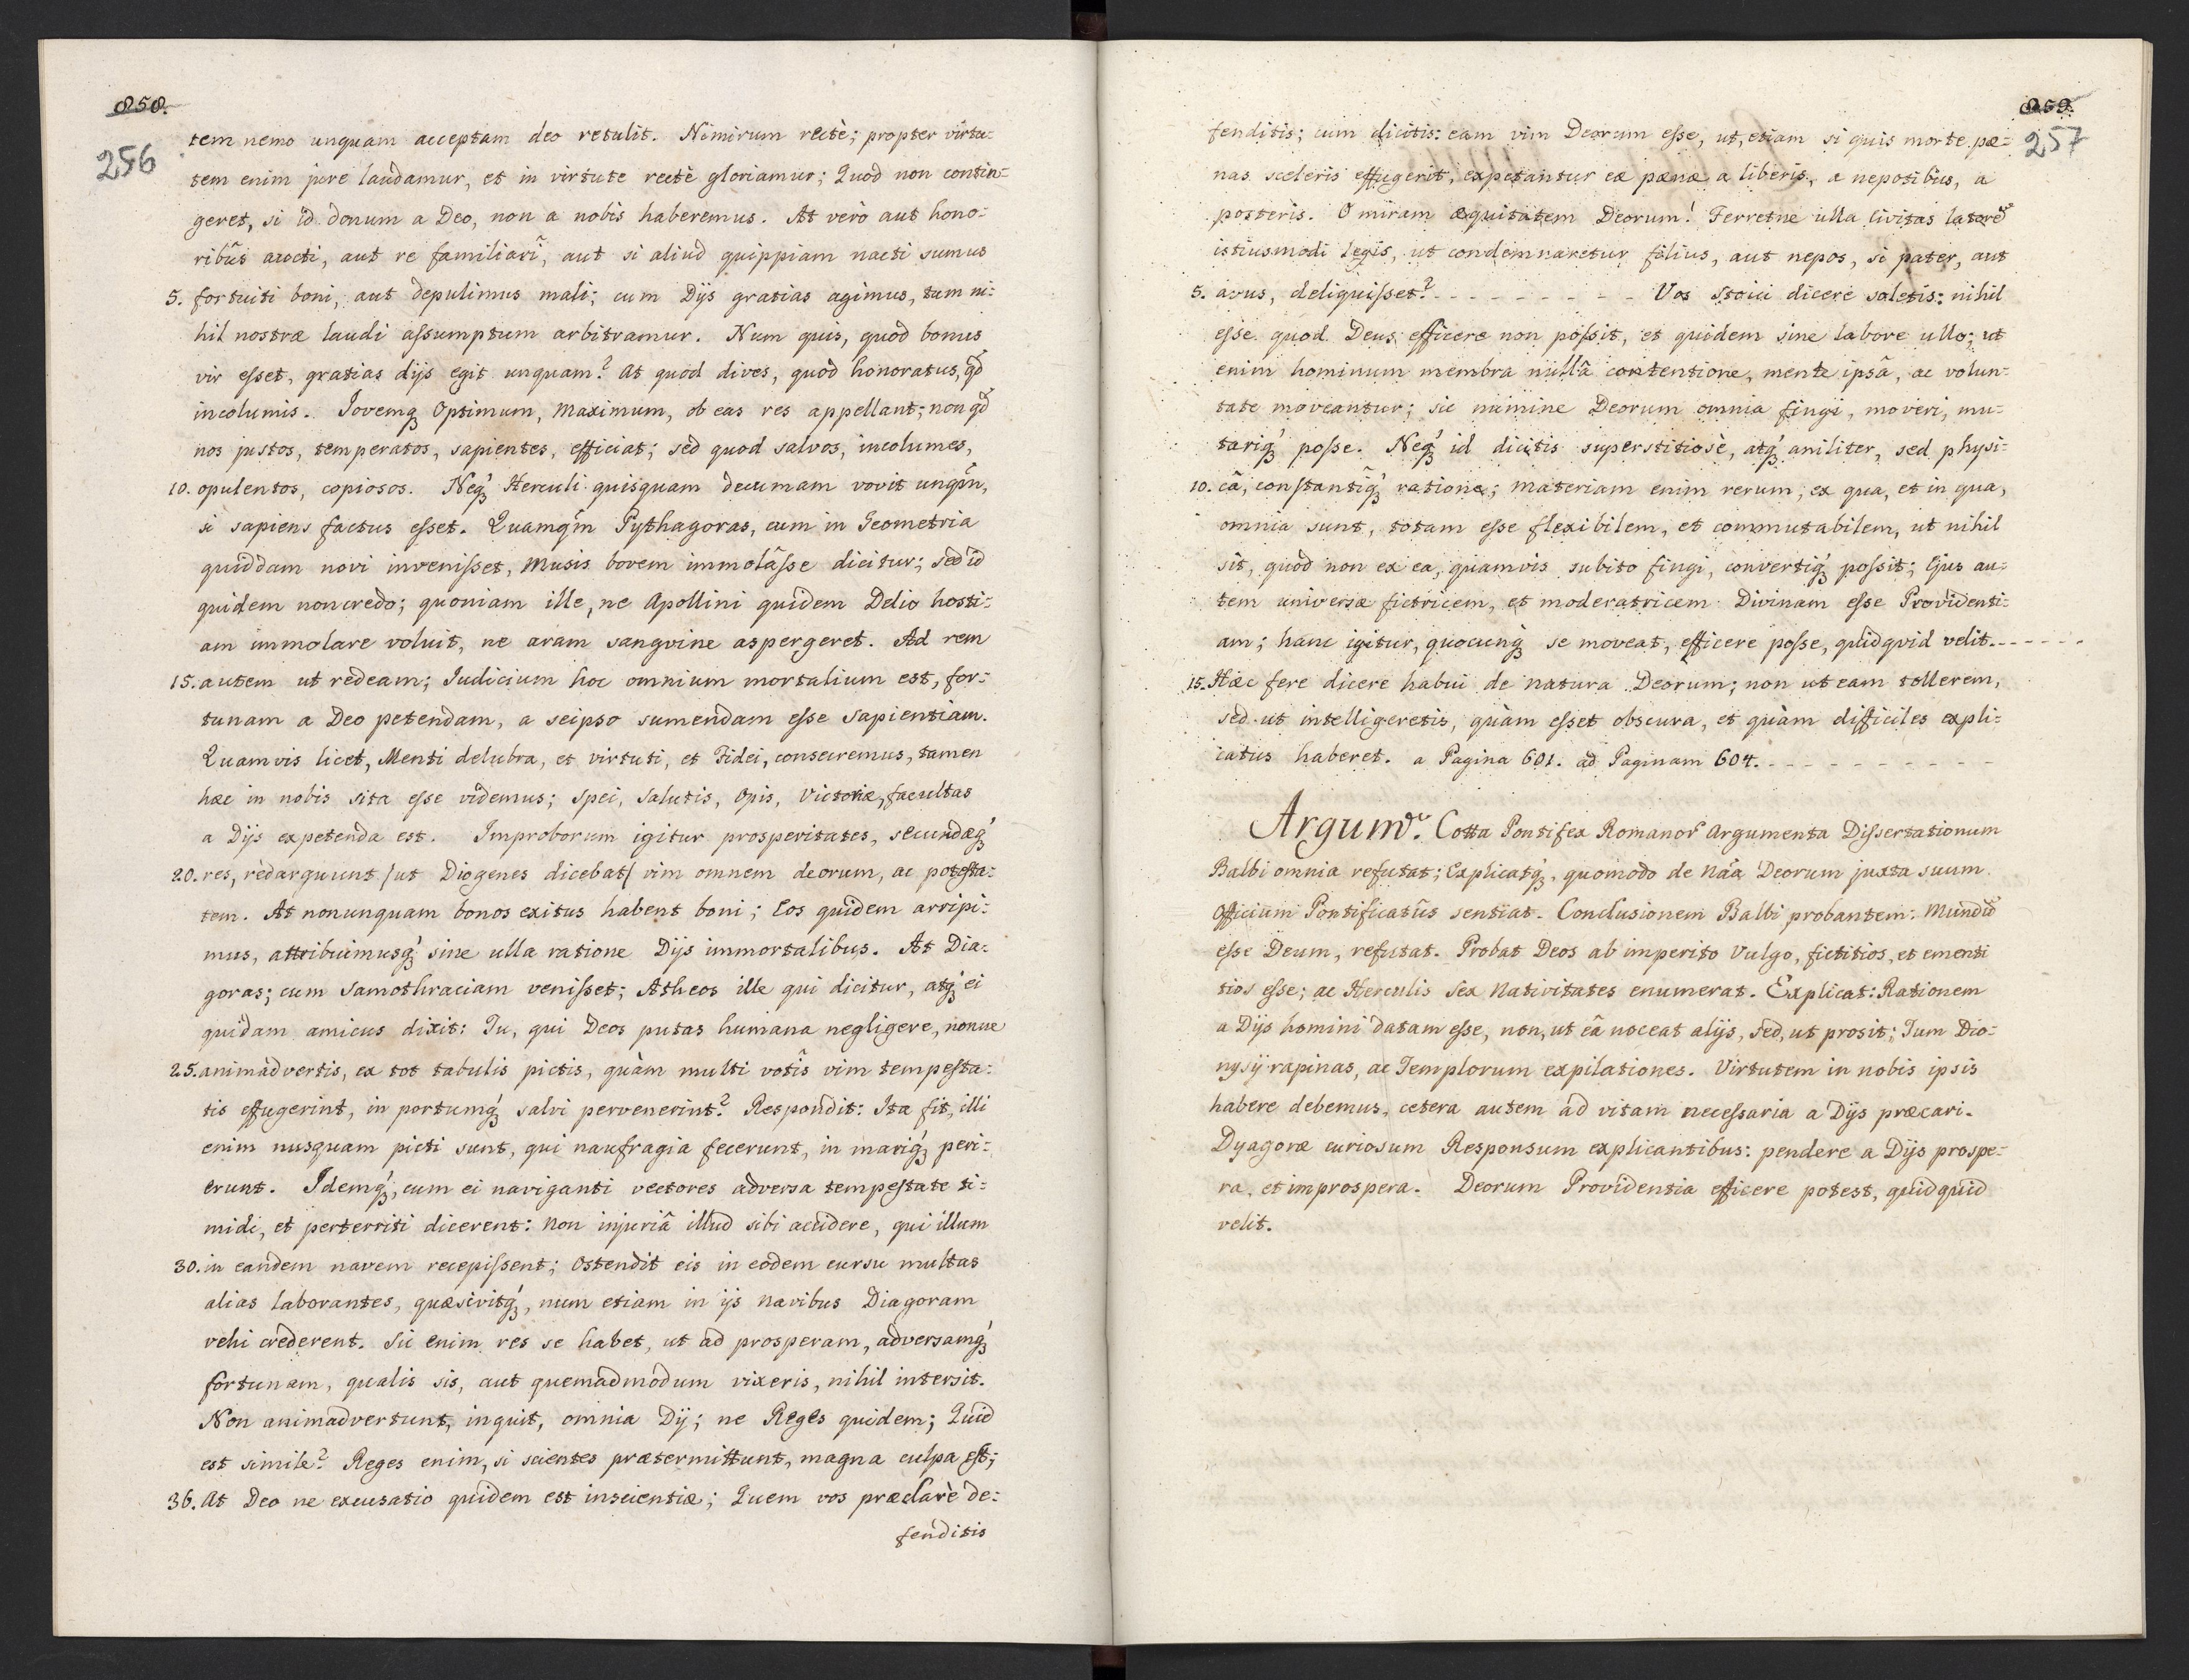 258.
256
tem nemo unquam acceptam deo retulit. Nimirum rectè; propter virtu=
tem enim jure laudamur, et in virtute rectè gloriamur; Quod non contin=
geret, si id donum a Deo, non a nobis haberemus. At verò aut hono=
ribûs aucti, aut re familiari, aut si aliud quippiam nacti sumus
5. fortuiti boni, aut depulimus mali; cum Dijs gratias agimus, tum ni=
hil nostræ laudi assumptum arbitramur. Num quis, quod bonus
vir esset, gratias dijs egit unquam? At quod dives, quod honoratus, qd
incolumis. Jovemq́ Optimum, Maximum, ob eas res appellant; non qd
nos justos, temperatos, sapientes, efficiat; sed quod salvos, incolumes,
10. opulentos, copiosos. Neq́ Herculi quisquam decumam vovit unqm̃,
si sapiens factus esset. Quamqm̃ Pythagoras, cum in Geometria
quiddam novi invenisset, Musis bovem immolâsse dicitur; sed id
quidem non credo; quoniam ille, ne Apollini quidem Delio hosti=
am immolare voluit, ne aram sangvine aspergeret. Ad rem
15. autem ut redeam; Judicium hoc omnium mortalium est, for=
tunam a Deo petendam, a seipso sumendam esse sapientiam.
Quamvis licet, Menti delubra, et virtuti, et Fidei, consecremus, tamen
hæc in nobis sita esse videmus; Spei, Salutis, Opis, Victoriæ, facultas
a Dijs expetenda est. Improborum igitur prosperitates, secundæq́
20. res, redarguunt /ut Diogenes dicebat/ vim omnem deorum, ac potesta=
tem. At nonunquam bonos exitus habent boni; Eos quidem arripi=
mus, attribuimusq́ sine ulla ratione Dijs immortalibus. At Dia=
goras; cum Samothraciam venisset; Atheos ille qui dicitur, atq́ ei
quidam amicus dixit: Tu, qui Deos putas humana negligere, nonne
25. animadvertis, ex tot tabulis pictis, quàm multi votis vim tempesta=
tis effugerint, in portumq́ salvi pervenerint? Respondit: Ita fit, illi
enim nusquam picti sunt, qui naufragia fecerunt, in mariq́ peri=
erunt. Idemq́, cum ei naviganti vectores adversa tempestate ti=
midi, et perterriti dicerent: non injuriâ illud sibi accidere, qui illum
30. in eandem navem recepissent; Ostendit eis in eodem cursu multas
alias laborantes, quæsivitq́, num etiam in ijs navibus Diagoram
vehi crederent. Sic enim res se habet, ut ad prosperam, adversamq́
fortunam, qualis sis, aut quemadmodum vixeris, nihil intersit.
Non animadvertunt, inquit, omnia Dij; ne Reges quidem; Quid
est simile? Reges enim, si scientes prætermittunt, magna culpa est;
36. At Deo ne excusatio quidem est inscientiæ; Quem vos præclarè de=
fenditis
259.
257
fenditis; cum dicitis: eam vim Deorum esse, ut, etiam si quis morte pæ=
nas sceleris effugerit, expetantur eæ pænæ a liberis, a nepotibus, a
posteris. O miram æquitatem Deorum! Ferretne ulla Civitas latorē
istiusmodi Legis, ut condemnaretur filius, aut nepos, si pater, aut
5. avus, deliquisset? - - - - - - - - - Vos Stoici dicere soletis: nihil
esse quod Deus efficere non possit, et quidem sine labore ullo; ut
enim hominum membra nullâ contentione, mente ipsâ, ac volun=
tate moveantur; sic numine Deorum omnia fingi, moveri, mu=
tariq́ posse. Neq́ id dicitis superstitiosè, atq́ aniliter, sed physi=
10. câ, constantiq́ ratione; Materiam enim rerum, ex qua, et in qua,
omnia sunt, totam esse flexibilem, et commutabilem, ut nihil
sit, quod non ex ea, quamvis subito fingi, convertiq́ possit; Ejus au=
tem universæ fictricem, et moderatricem Divinam esse Providenti=
am; hanc igitur, quocunq́ se moveat, efficere posse, quidquid velit. - - - - - -
15. Hæc fere dicere habui de Natura Deorum; non ut eam tollerem,
sed ut intelligeretis, quàm esset obscura, et quàm difficiles expli=
catus haberet. a Pagina 601. ad Paginam 604. - - - - - - - - - -
Argum. Cotta Pontifex Romanor Argumenta Dissertationum
Balbi omnia refutat; Explicatq́, quomodo de Nãa Deorum juxta suum
Officium Pontificatûs sentiat. Conclusionem Balbi probantem: Mundū
esse Deum, refutat. Probat Deos ab imperito Vulgo, fictitios, et ementi
tios esse; ac Herculis sex Nativitates enumerat. Explicat: Rationem
a Dijs homini datam esse, non, ut eâ noceat alijs, sed, ut prosit; Tum Dio=
nysij rapinas, ac Templorum expilationes. Virtutem in nobis ipsis
habere debemus, cetera autem ad vitam necessaria a Dijs præcari.
Dyagoræ curiosum Responsum explicantibus: pendere a Dijs prospe=
ra, et improspera. Deorum Providentia efficere potest, quidquid
velit.